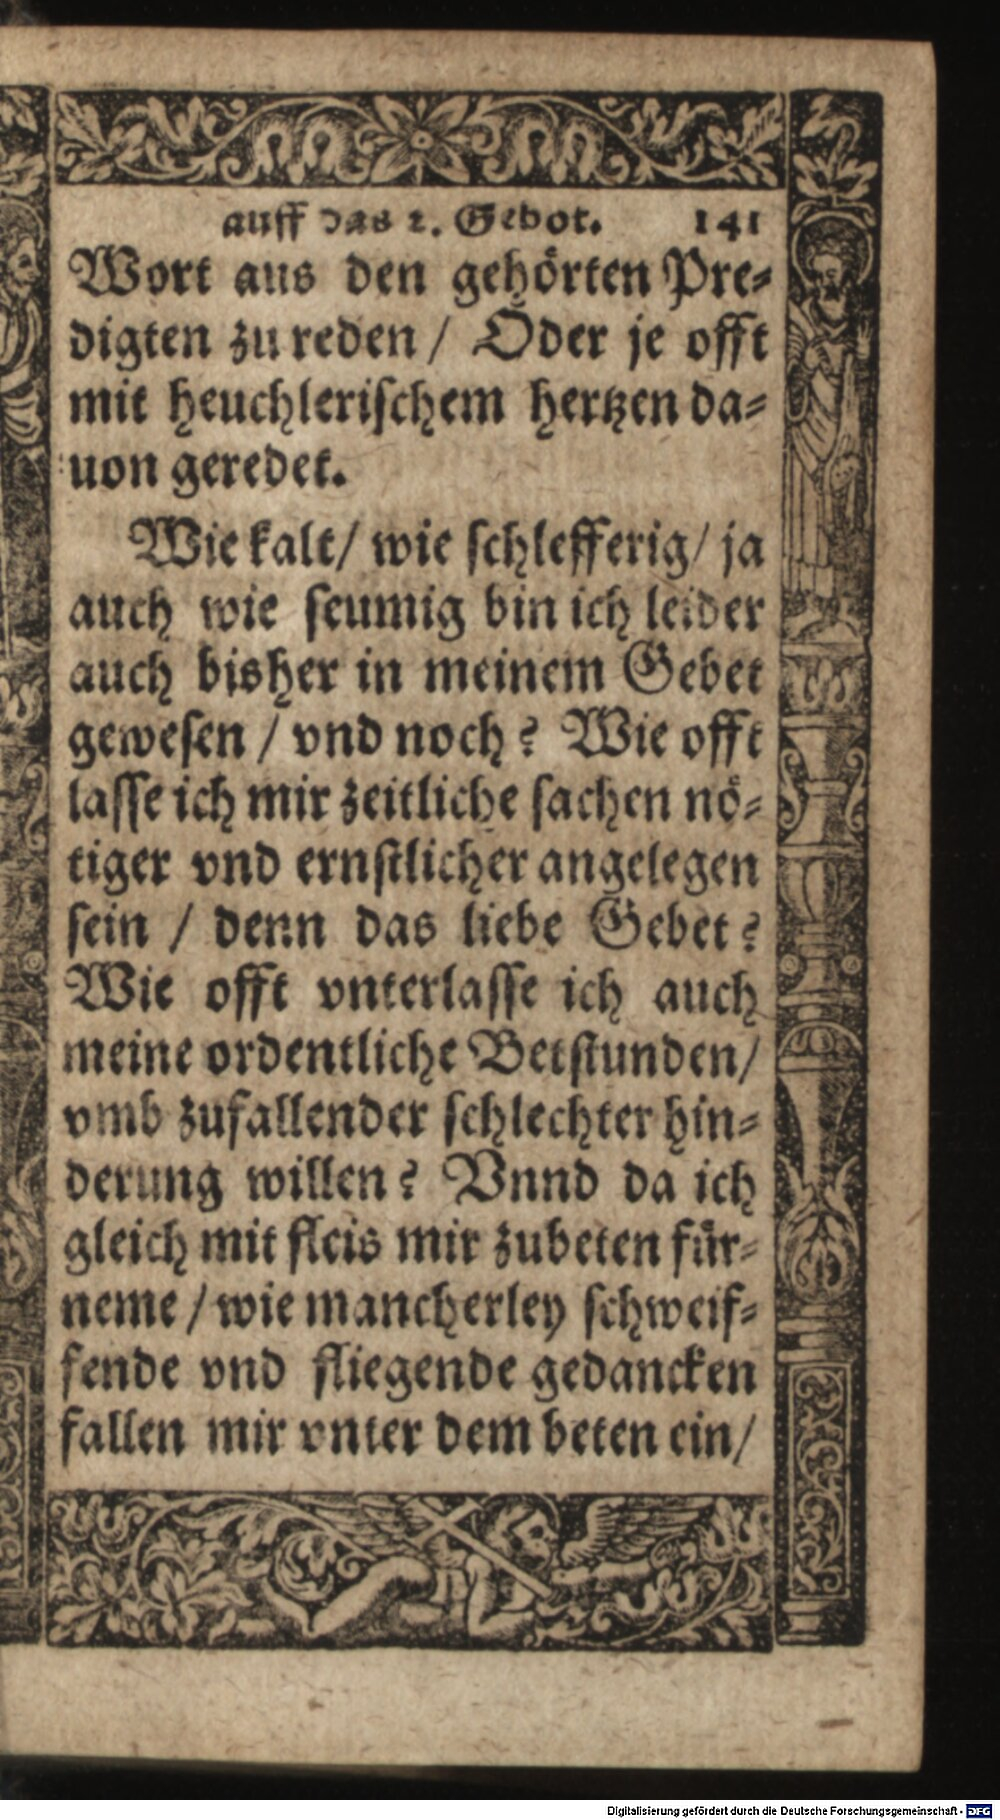 auff das 2. Gebot. 141
Wort aus den gehörten Pre-
digten zu reden / Oder je offt
mit heuchlerischem hertzen da-
uon geredet.
Wie kalt / wie schlefferig / ja
auch wie seumig bin ich leider
auch bisher in meinem Gebet
gewesen / vnd noch? Wie offt
lasse ich mir zeitliche sachen nö-
tiger vnd ernstlicher angelegen
sein / denn das liebe Gebet?
Wie offt vnterlasse ich auch
meine ordentliche Betstunden /
vmb zufallender schlechter hin-
derung willen? Vnnd da ich
gleich mit fleis mir zubeten für-
neme / wie mancherley schweif-
fende vnd fliegende gedancken
fallen mir vnter dem beten ein /
Digitalisierung gefördert durch die Deutsche Forschungsgemeinschaft - DFG